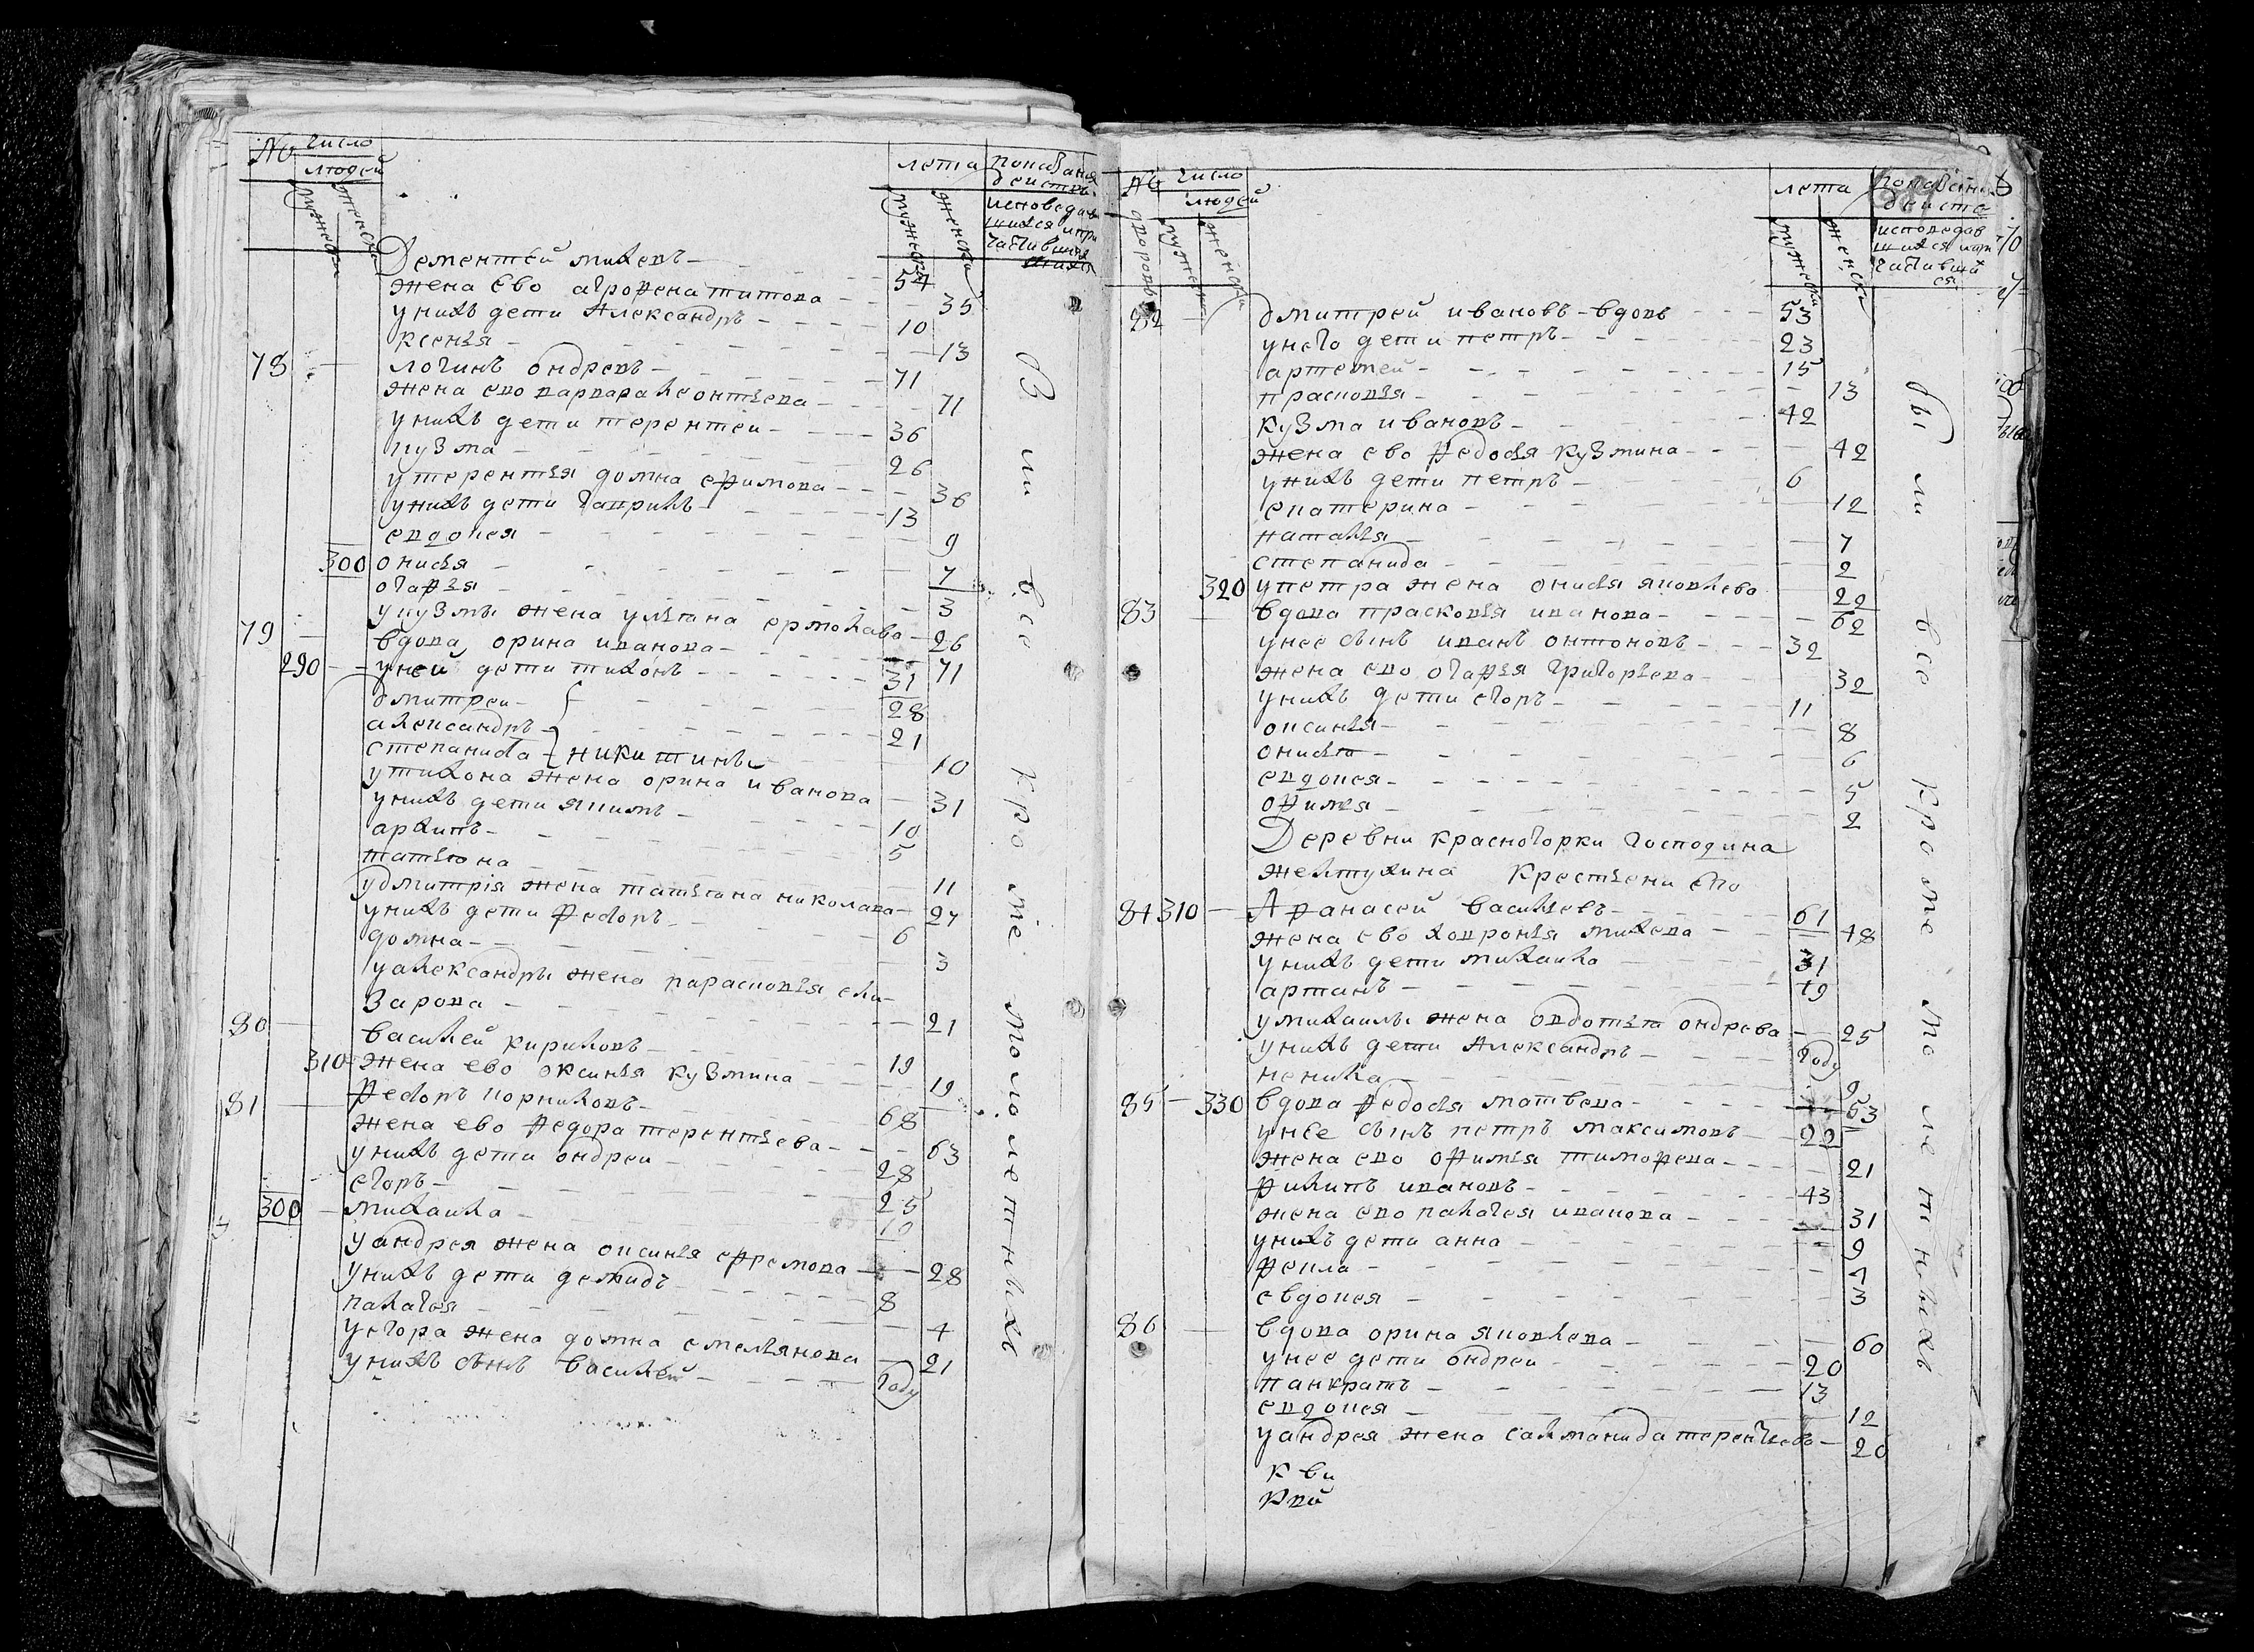 № число людей лета показания действъ
мужеска женска мужеска женска исповедавшихся и причастившихся
Дементей михеевъ — 54
жена ево аграфена титова — 35
у нихъ дети Александръ — 10
ксенья — 13
78 логинъ ондревъ — 71
жена ево варвара леонтьева — 71
у нихъ дети терентеи — 36
кузма — 26
у терентья домна ефимова — 36
у нихъ дети гаврилъ — 13
евдокея — 9
300 онисья — 7
огафья — 3
у кузмы жена ульяна ермолава — 26
79 вдова орина иванова — 71
290 у ней дети тихонъ — 31
дмитреи — 28
александръ — 21
степанида — никитины 10
у тихона жена орина иванова — 31
у нихъ дети якимъ — 10
архипъ — 5
татьяна — 11
у дмитрія жена татьяна николава — 27
у нихъ дети федоръ — 6
домна — 3
у александры жена парасковья ели-
зарова — 21
80 василей кириловъ — 19
310 жена ево оксинья кузмина — 19
81 федоръ корниловъ — 68
жена ево федора терентьева — 63
у нихъ дети ондреи — 28
егоръ — 25
300 михаила — 10
у андрея жена оксинья ефремова — 28
у нихъ дети демидъ — 8
палагея — 4
у егора жена домна емельянова — 21
у нихъ сынъ василей — году
были все кроме малолетныхъ
№ дворовъ число людей лета показания действ
мужеска женска мужеска женска исповедавшихся и причастившихся
82 дмитрей ивановъ — вдовъ — 53
у него дети петръ — 23
артемей — 15
прасковья — 13
кузма ивановъ — 42
жена ево федосья кузмина — 42
у нихъ дети петръ — 6
екатерина — 12
наталья — 7
степанида — 2
320 у петра жена онисья яковлева 22
83 вдова прасковья иванова — 62
у нее сынъ иванъ онтоновъ — 32
жена ево огафья григорьева — 32
у нихъ дети егоръ — 11
оксинья — 8
онисья — 6
евдокея — 5
офимья — 2
Деревни красногорки господина
желтухина крестьени ево
84 310 Афанасей васильевъ — 61
жена ево ховронья михева — 48
у нихъ дети михаила — 31
артанъ — 19
у михаилы жена овдотья ондрева — 25
у нихъ дети Александръ — году
ненила — 9
85 330 вдова федосья матвева — 53
у нее сынъ петръ максимовъ — 22
жена ево офимья тимофева — 21
филипъ ивановъ — 43
жена ево палагея иванова — 31
у нихъ дети анна — 9
фекла — 7
евдокея — 3
86 вдова орина яковлева — 60
у нее дети ондреи — 20
панкратъ — 13
евдокея — 12
у андрея жена салманида терентьева — 20
были все кроме малолетныхъ